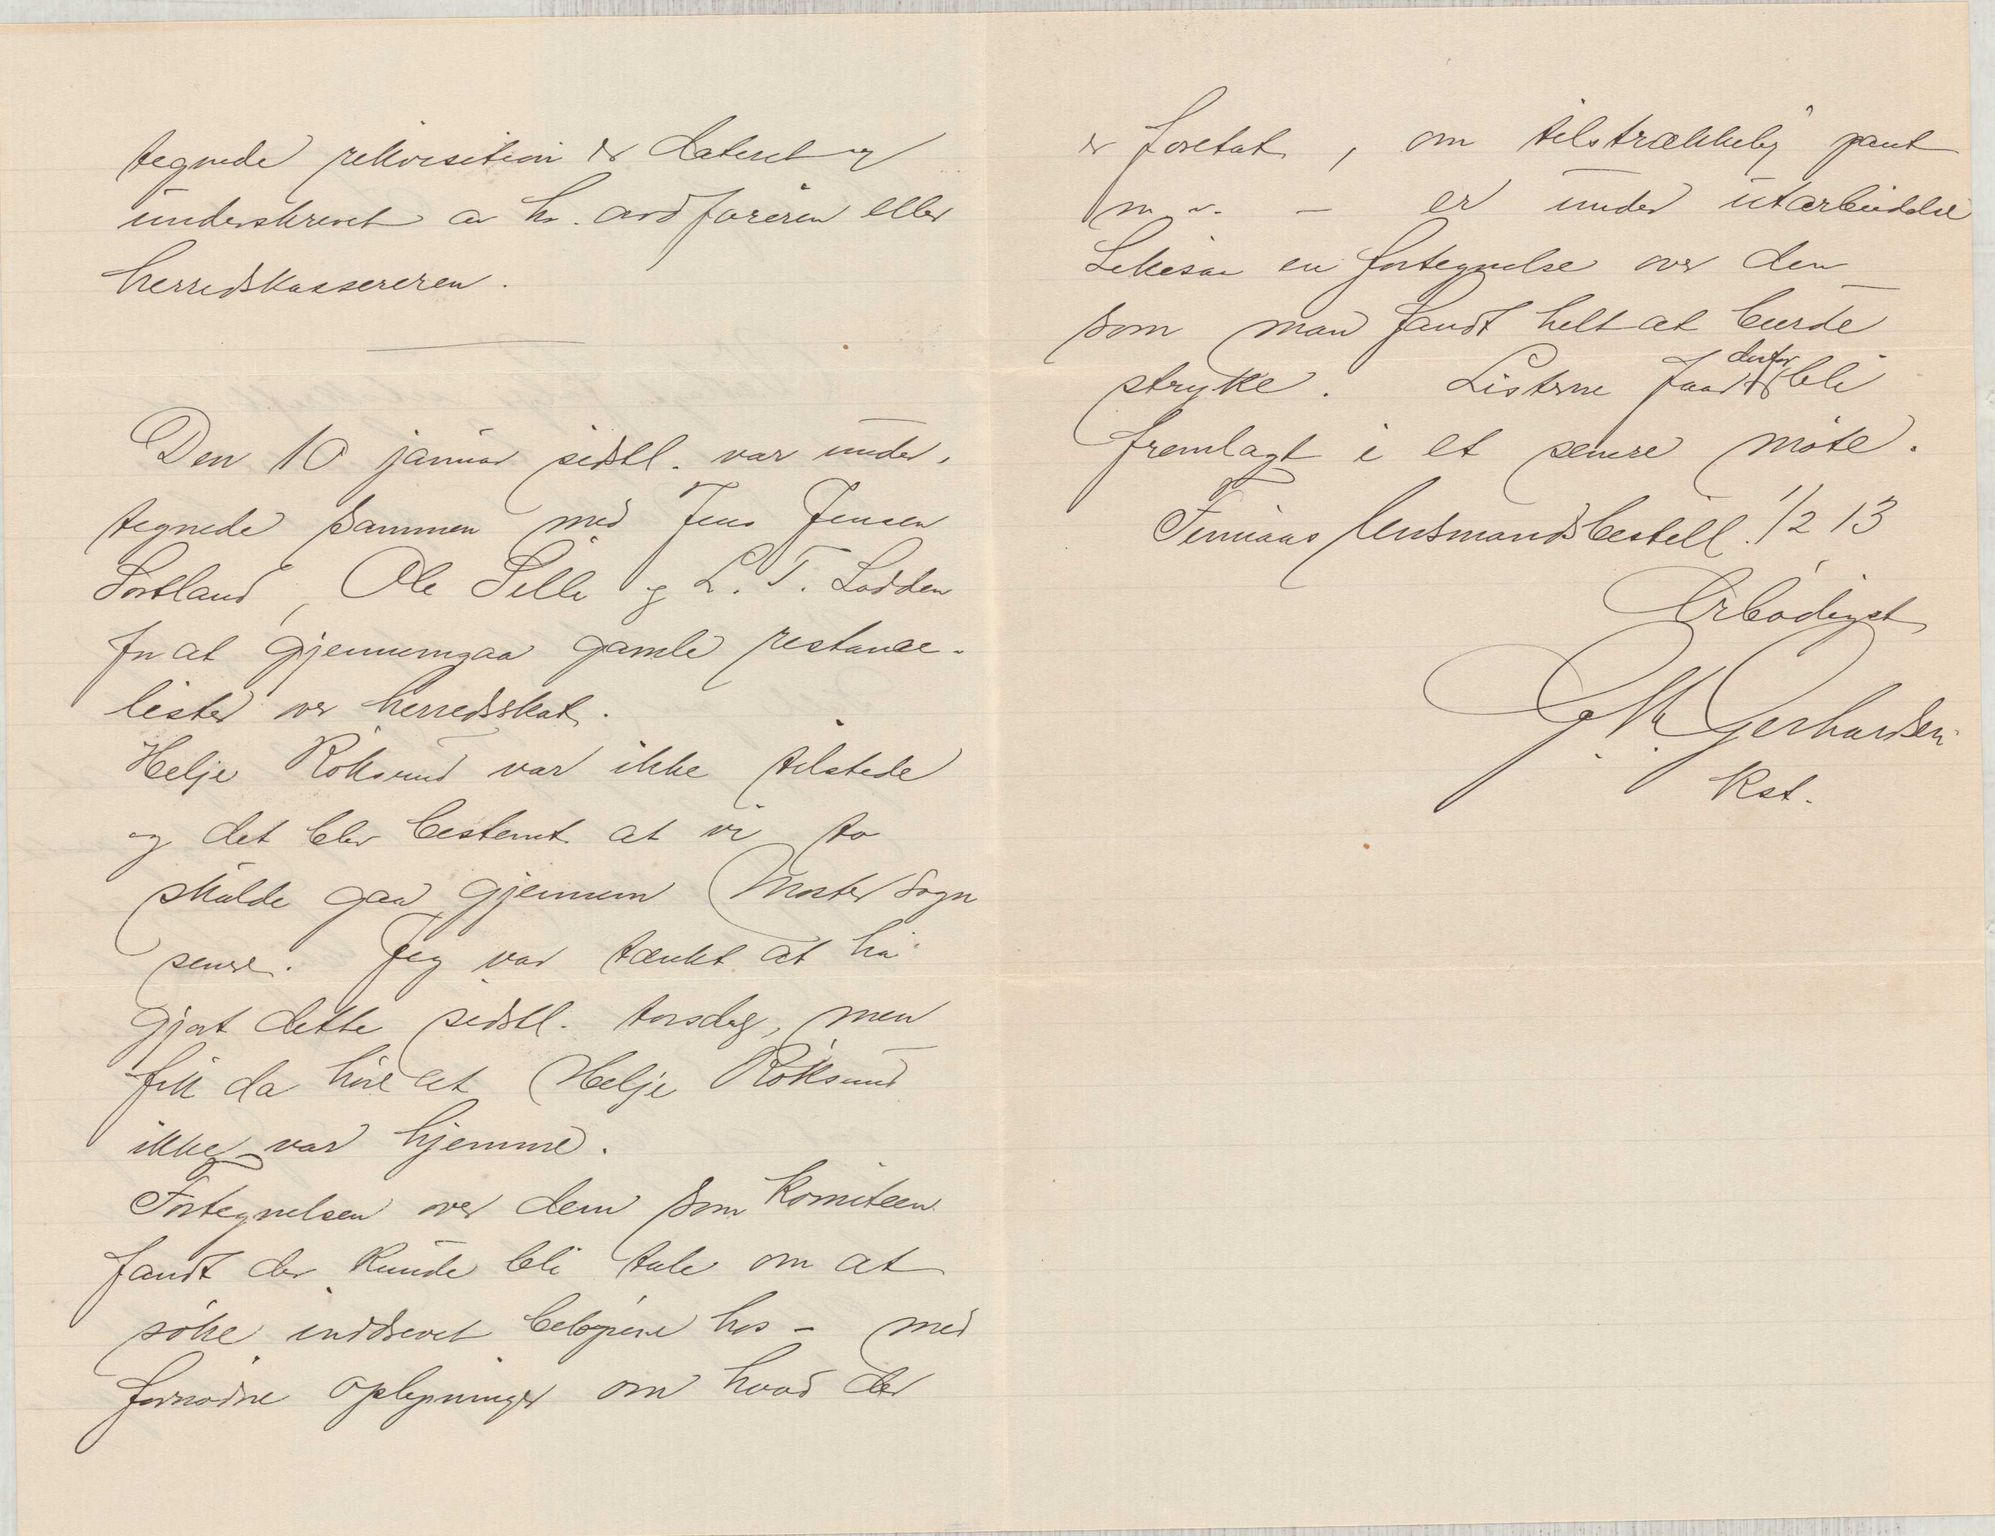 tegnede rekvisition er dateret og
underskrevet av hr. ordføreren eller
herredskassereren.
Den 10 januar sidstl. var under-
tegnede sammen med Jens Jensen
Sortland, Ole Selle og L. T. Lodden
for at gjennemgaa gamle restance-
lister over herredsskat.
Helje Röksund var ikke tilstede
og det blev bestemt at vi to
skulde gaa gjennem Moster sogn
senere. Jeg var tænkt at ha
gjort dette sidstl. torsdag, men
fik da høre at Helje Röksund
ikke var hjemme.
Fortegnelsen over dem som komiteen
fandt der kunde bli tale om at
søke inddrevet beløpene hos - med
fornødne oplysninger om hvad der
er foretat, om tilstrækkelig pant
m. v. - er under utarbeidelse
Likesaa en fortegnelse over dem
som man fandt helt at burde
stryke. Listerne faar derfor bli
fremlagt i et senere møte.
Finnaas lensmandsbestill. 1/2 13
Ærbødigst
G. M. Gerhardsen
Kst.